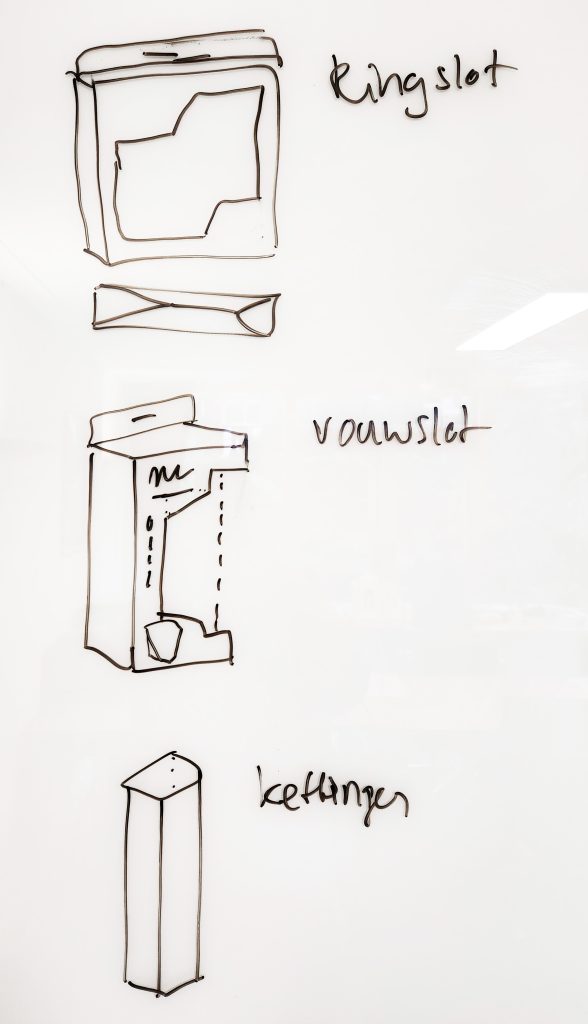 Ringslot
vouwslot
kettingen